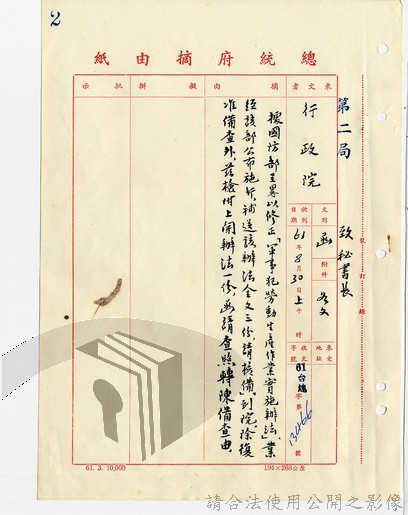 2
總統府摘由紙
來文者
摘由
擬辦
批示
行政院
文別
函
附件
如文
收到日期
61年8月30日上午
時
來文字號
收文
61台總字第13466號
第二局
政秘書長
裝訂線
據國防部呈畧以修正「軍事犯勞動生產作業實施辦法」業
經該部公布施行,補送該辦法全文三份,請核備」到院。除復
准備查外,茲檢附上開辦法一份,函請查照轉陳備查由。
61. 3. 10,000
194×268公厘
請合法使用公開之影像